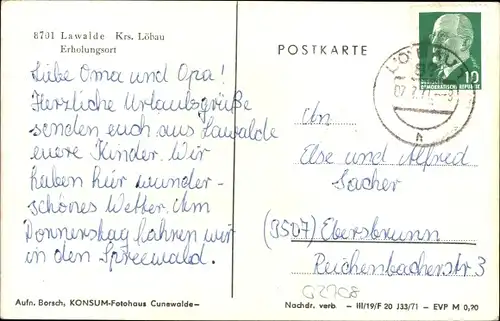 8701 Lawalde Krs. Löbau
Erholungsort
Liebe Oma und Opa!
Herzliche Urlaubsgrüße
senden euch aus Lawalde
euere Kinder. Wir
haben hier wunder-
schönes Wetter. Am
Donnerstag fahren wir
in den Spreewald.
Aufn. Borsch, KONSUM-Fotohaus Cunewalde-
POSTKARTE
10
DEMOKRATISCHE REPUBLIK
h
An
Else und Alfred
Sacher
(9507) Ebersbrunn
Reichenbacherstr 3
G2708
Nachdr. verb. - III/19/F 20 J33/71 - EVP M 0,20